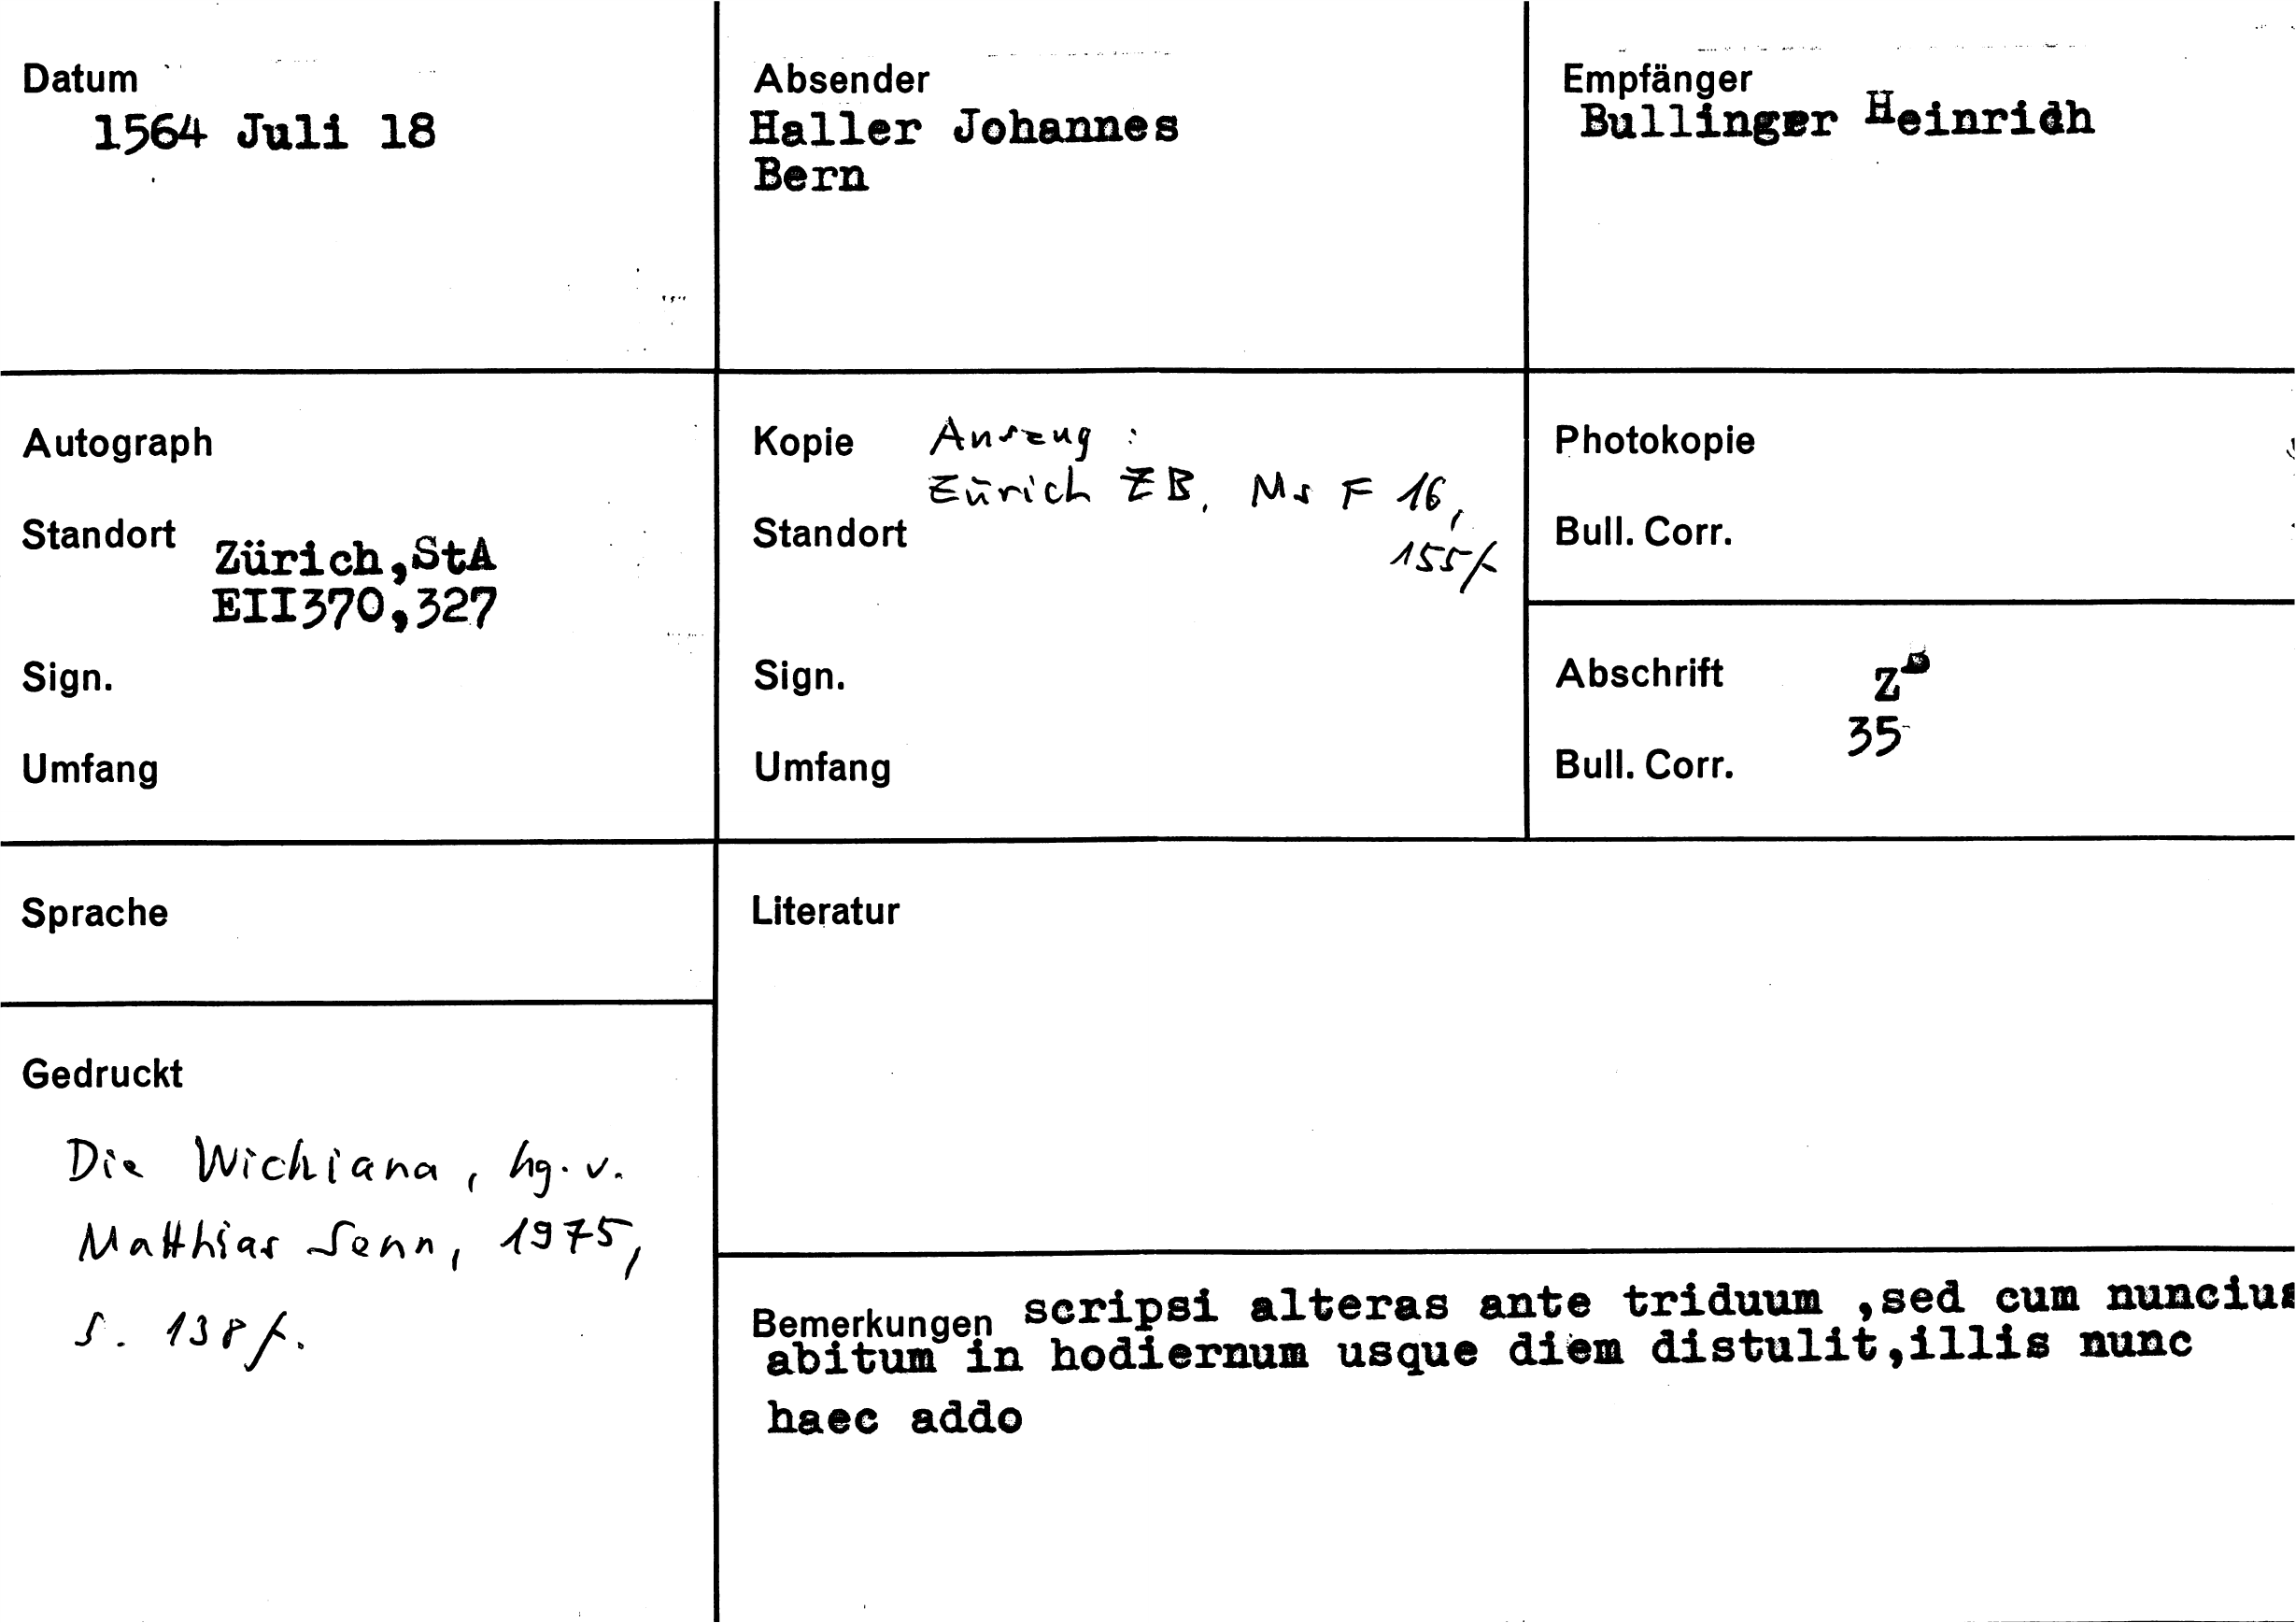 Datum
1564 Juli 18
Absender
Haller Johannes
Bern
Empfänger
Bullinger Heinrich
Autograph
Standort
Zürich,StA
EII370,327
Sign.
Umfang
Kopie Auszug :
Zürich ZB, Ms F 16,
Standort
155f
Sign.
Umfang
Photokopie
Bull. Corr.
Abschrift ZB
35
Bull. Corr.
Sprache
Literatur
Gedruckt
Die Wickiana, hg. v.
Matthias Senn, 1975,
S. 138f.
Bemerkungen scripsi alteras ante triduum ,sed cum nuncius
abitum in hodiernum usque diem distulit,illis nunc
haec addo